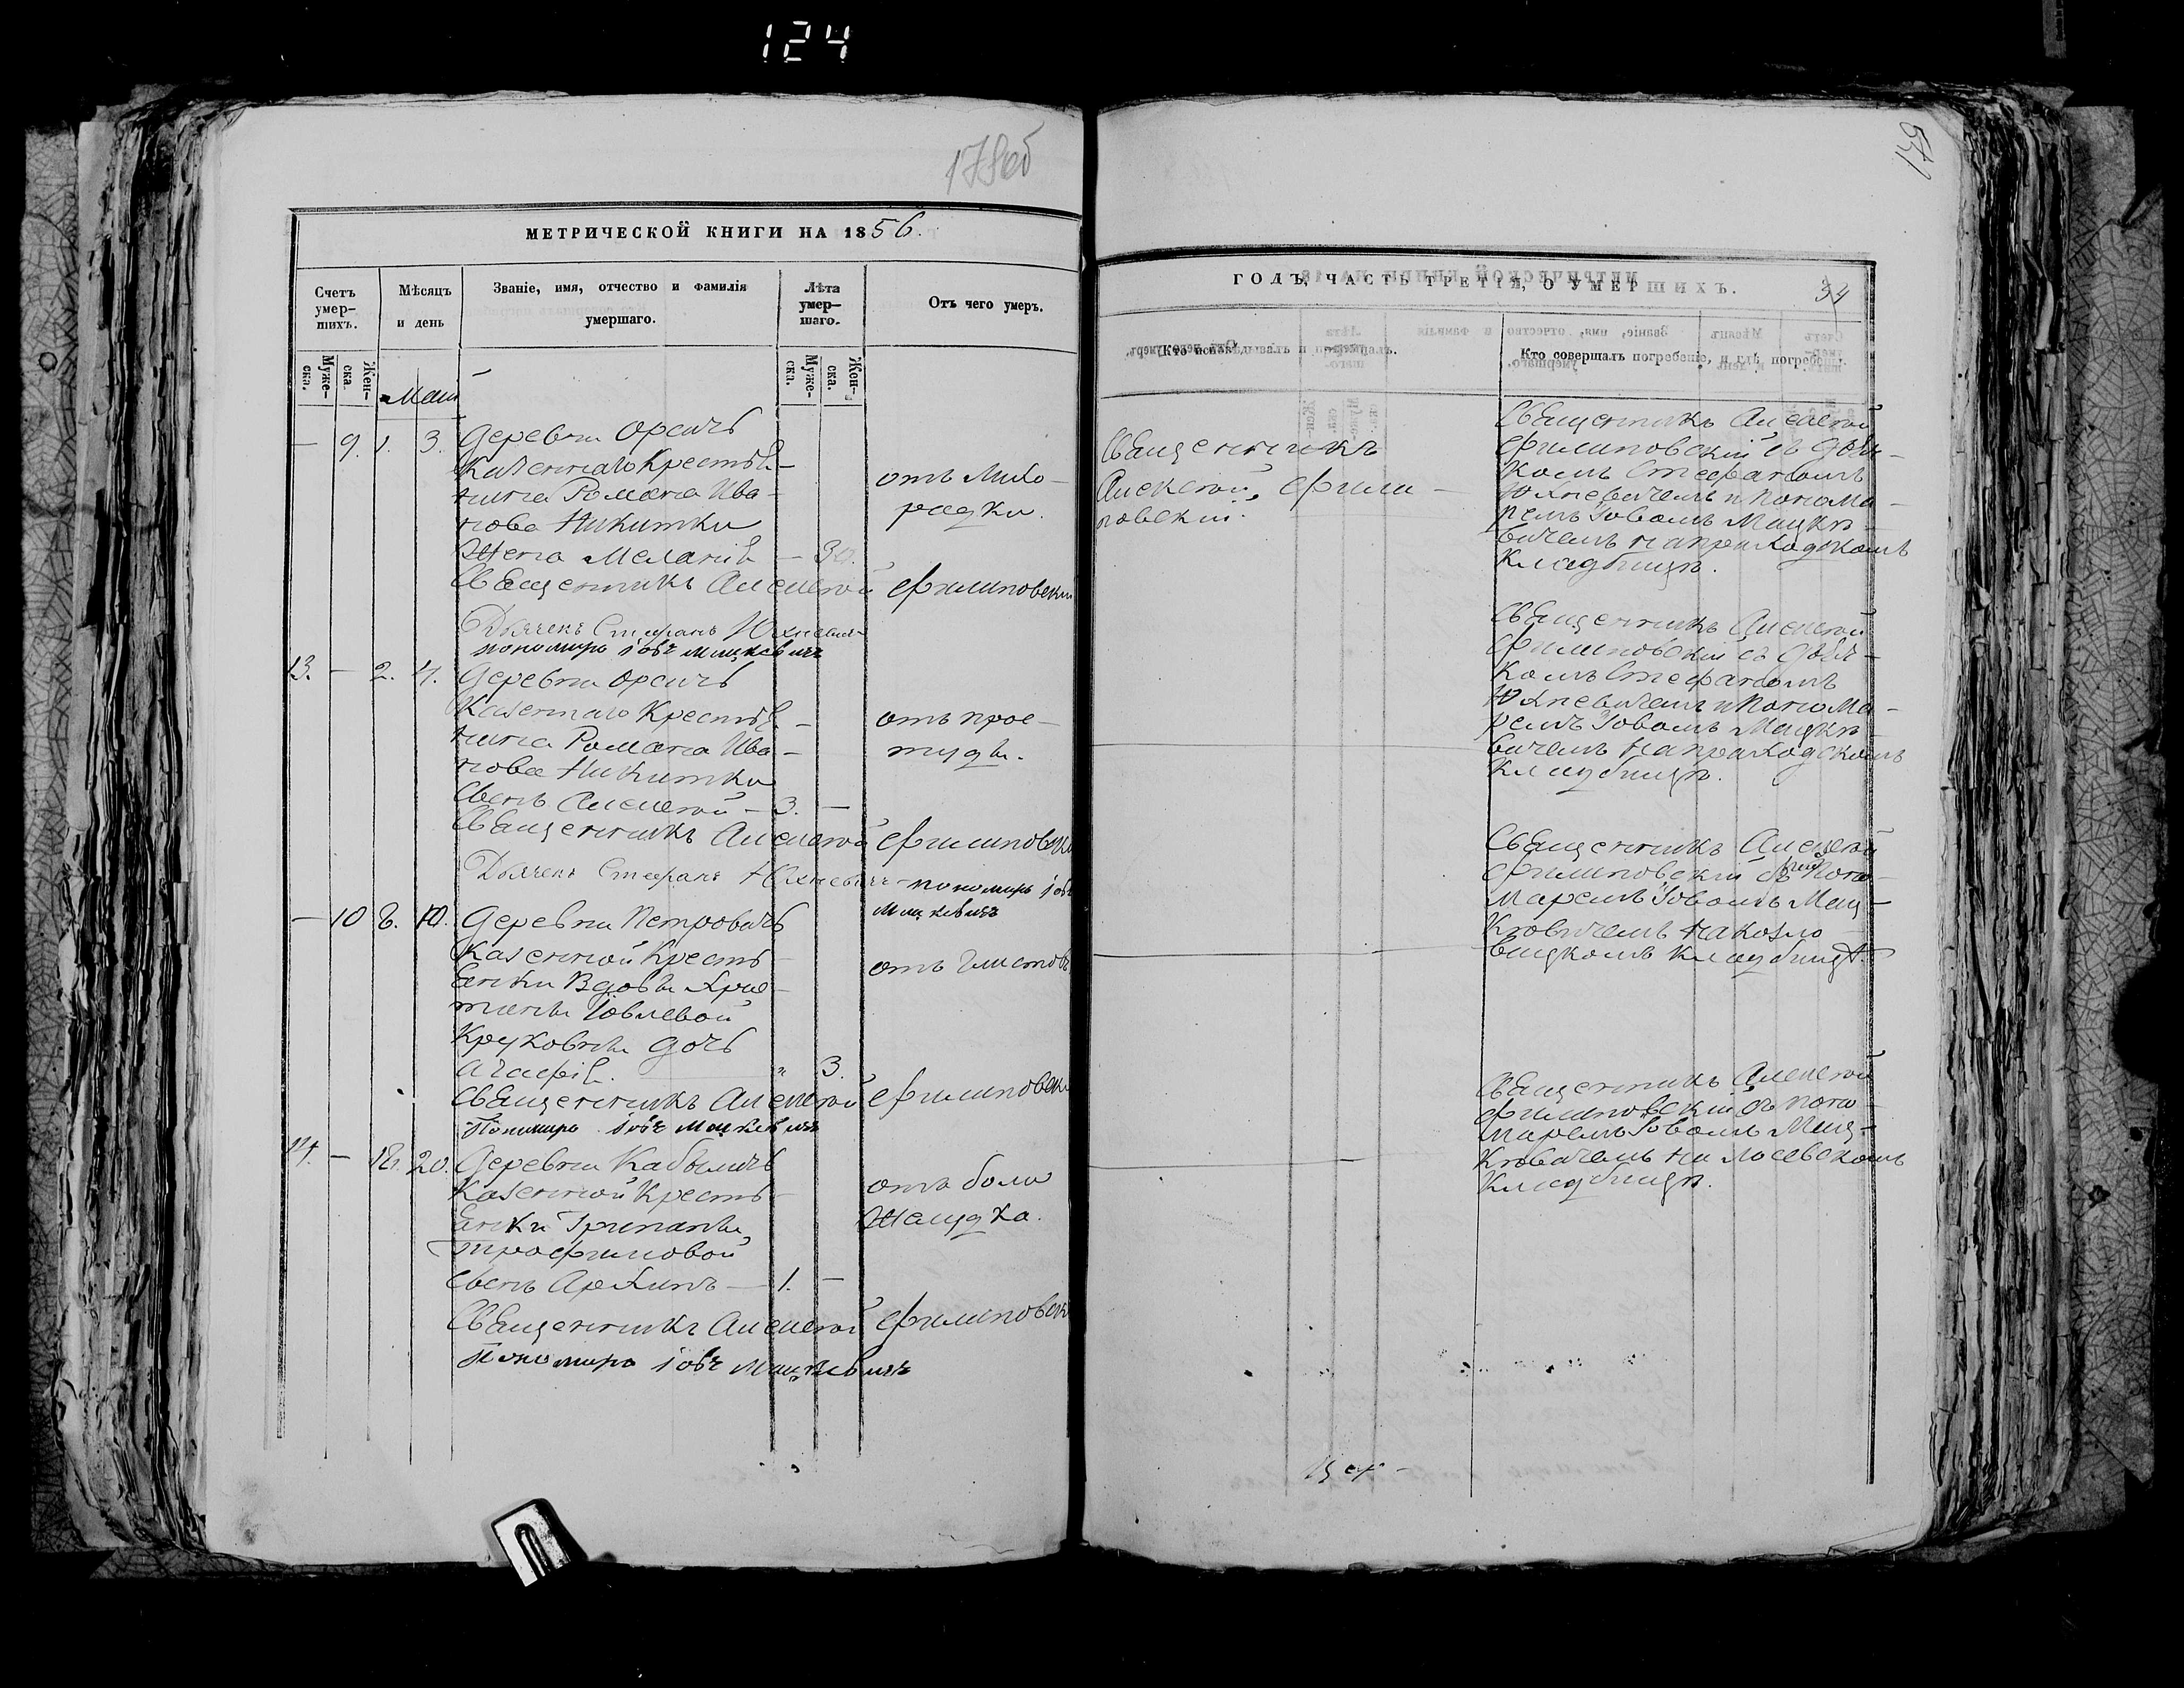 124
178об
МЕТРИЧЕСКОЙ КНИГИ НА 1856.
Счетъ умер-шихъ.
Мѣсяцъ и день
Званіе, имя, отчество и фамилія умершаго.
Лѣта умер-шаго.
Отъ чего умеръ.
Муже-ска.
Жен-ска.
Муже-ска.
Жен-ска.
Май
— 9. 1. 3. Деревни Оресичь
Казеннаго Крестья-
нина Романа Ива-
нова Никитки
Жена Меланія —
отъ лихо-
радки.
Священникъ Алексей Филиповскій
Дьячекъ Стефанъ Юхневичъ
пономарь Іовъ Мацкевичъ
13. — 2. 4. Деревни Оресичь
Казеннаго Крестья-
нина Романа Ива-
нова Никитки
Сынъ Алексей — 3. —
отъ прос-
туды.
Священникъ Алексей Филиповскій
Дьячекъ Стефанъ Юхневичъ пономарь Іовъ
Мацкевичъ
— 10 8. 10. Деревни Петровичь
Казенной Кресть-
янки Вдовы Хрис-
тины Іовлевой
Круковны дочь
Агафія. " 3.
отъ глистовъ
Священникъ Алексей Филиповскій
Пономарь Іовъ Мацкевичъ
14. — 18. 20. Деревни Кабыличь
Казенной Кресть-
янки Грипаны
Трофимовой
сынъ Архипъ — 1. —
отъ боли
Желудка.
Священникъ Алексей Филиповскій
Пономарь Іовъ Мацкевичъ
179
ГОДЪ, ЧАСТЬ ТРЕТІЯ, О УМЕРШИХЪ.
34
Кто исповѣдывалъ и пріобщалъ.
Кто совершалъ погребеніе, и гдѣ погребенъ.
Священникъ
Алексей Фили-
повскій.
Священникъ Алексей
Филиповскій съ дьяч-
комъ Стефаномъ
Юхневичемъ и Понома-
ремъ Іовомъ Мацке-
вичемъ на приходскомъ
кладбищѣ.
Священникъ Алексей
Филиповскій съ дьяч-
комъ Стефаномъ
Юхневичемъ и Понома-
ремъ Іовомъ Мацке-
вичемъ на приходскомъ
кладбищѣ.
Священникъ Алексей
Филиповскій съ Поно-
маремъ Іовомъ Мац-
кевичемъ на козло-
вицкомъ кладбищѣ.
Священникъ Алексей
Филиповскій съ поно-
маремъ Іовомъ Мац-
кевичемъ на Лосевскомъ
Кладбищѣ.